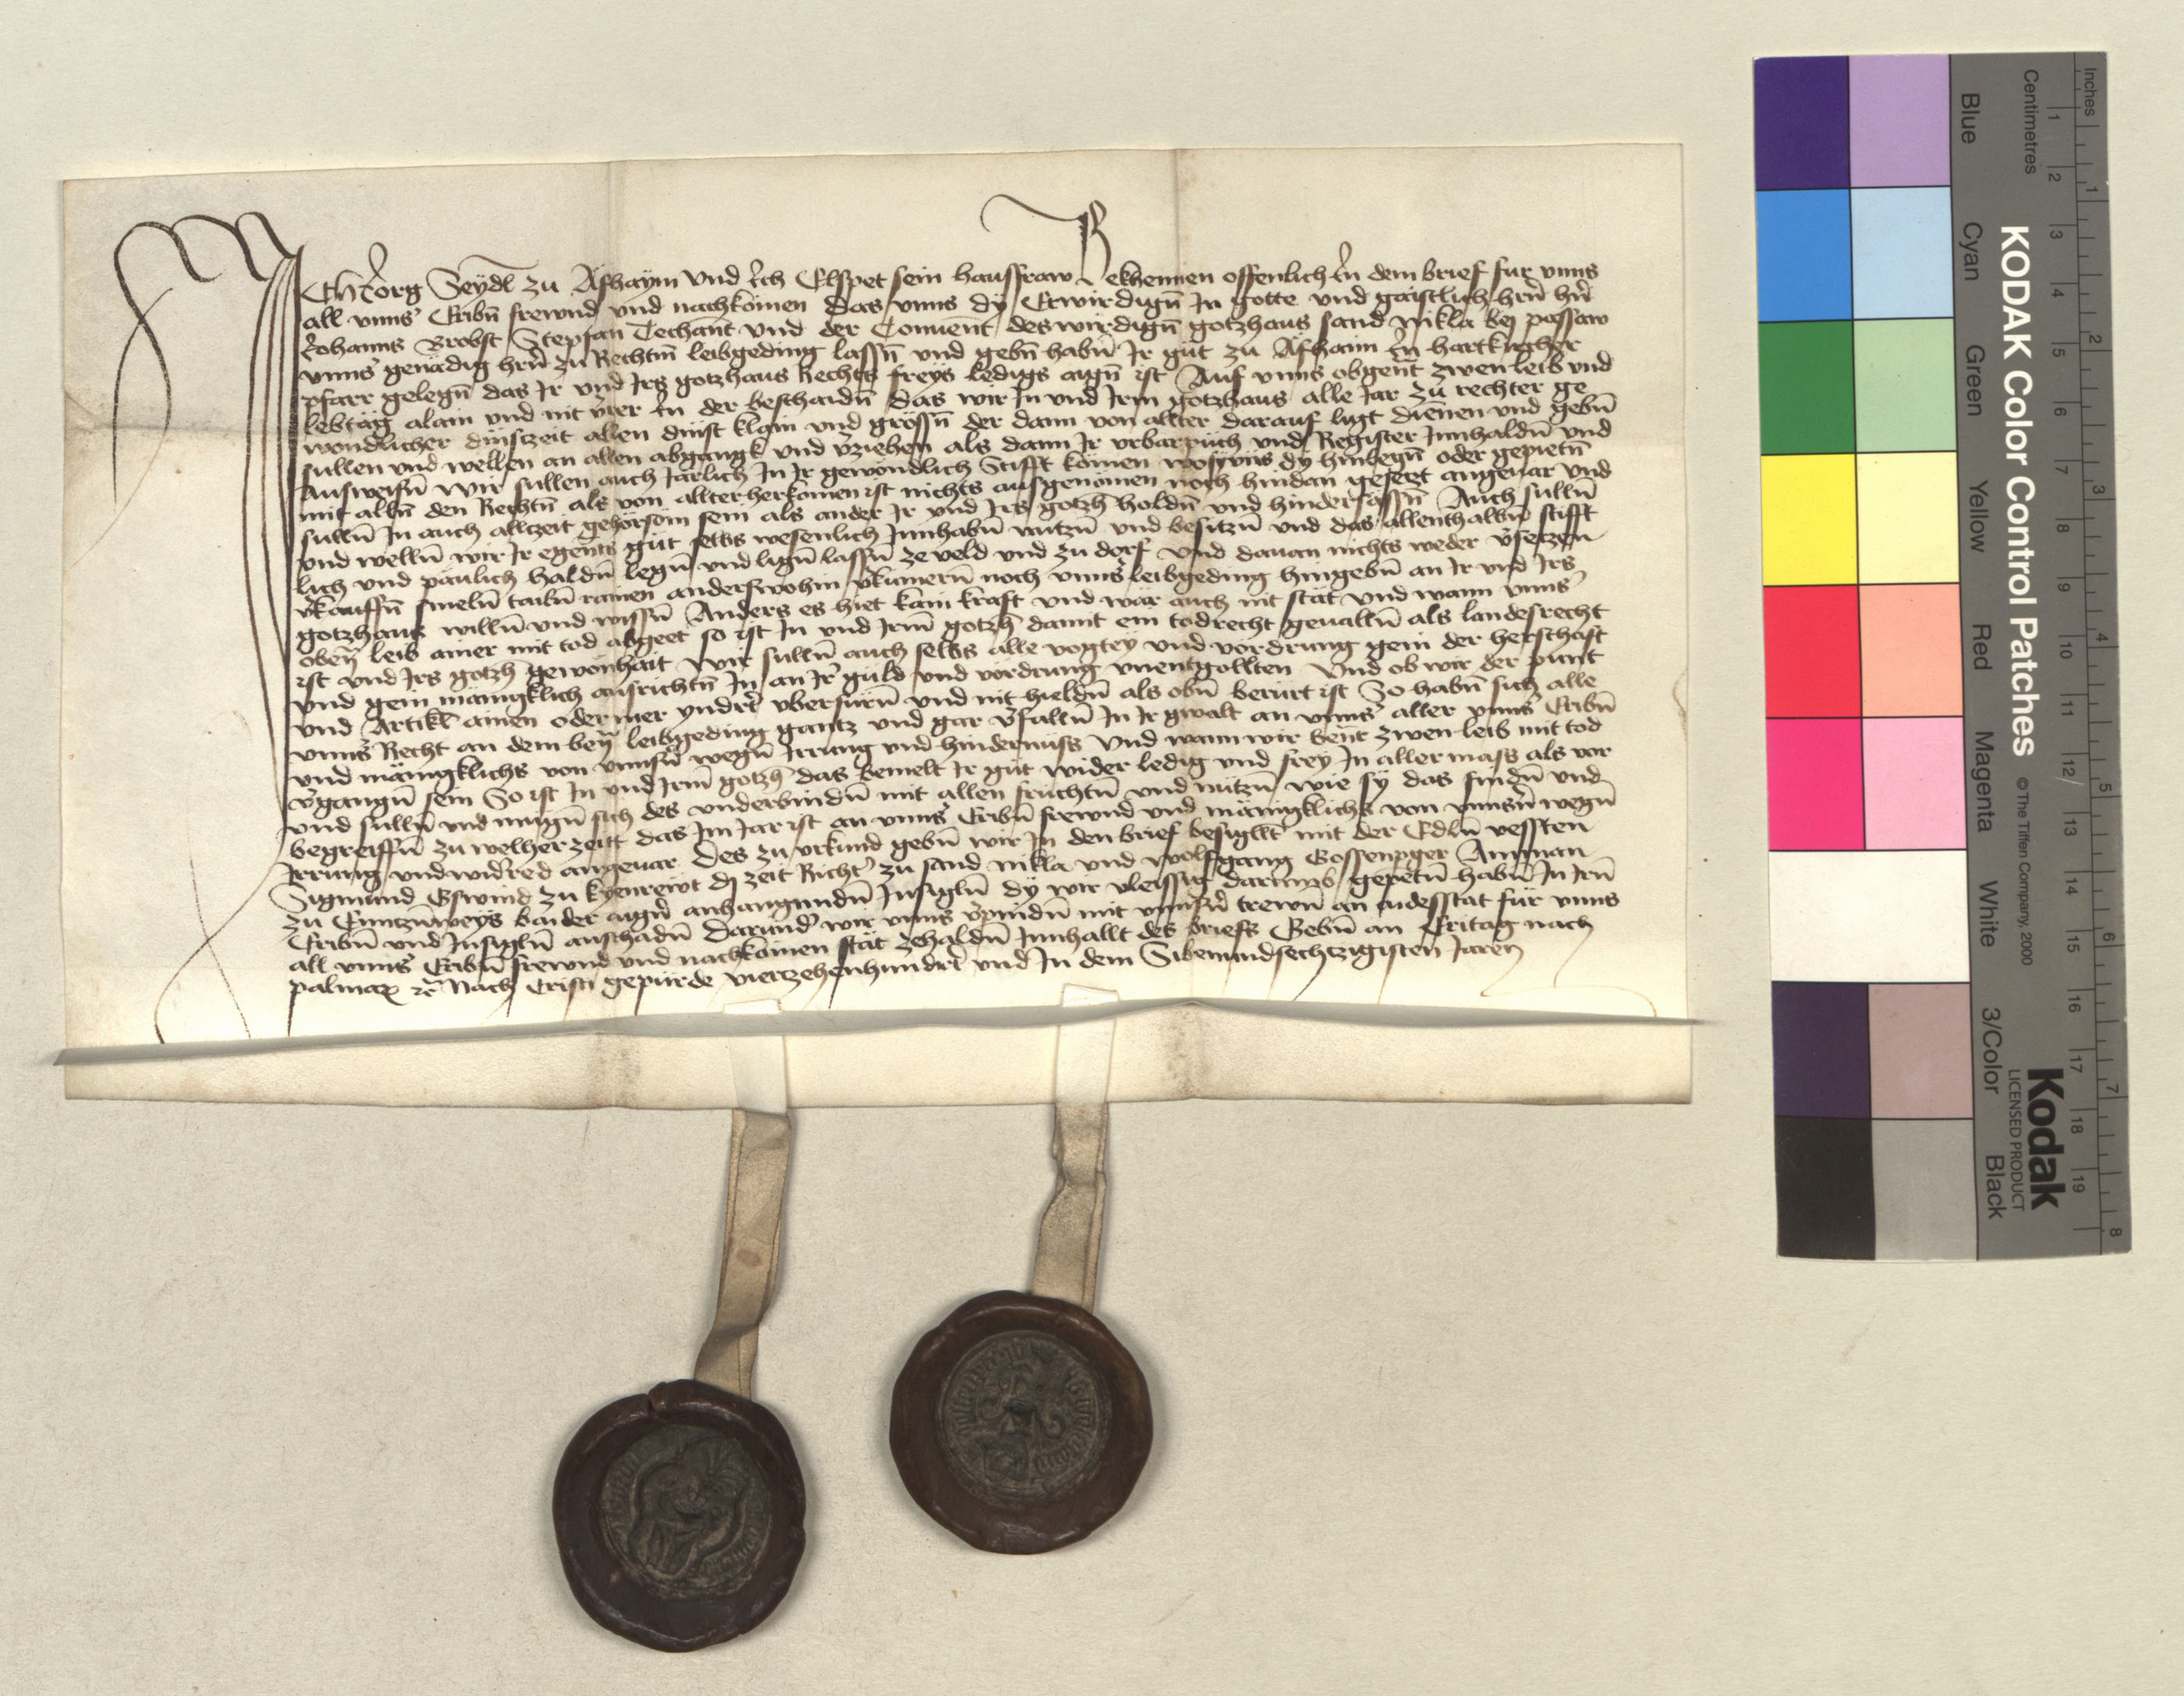 Ich Jorg Seydl zu Äshaym Und ich Elspet sein hausfraw Bekhennen offenlich in dem brief fur vnns
all vnns' Eribn̄ frewnd vnd nachkömen das vnns dy Erwirdign̄ In gotte vnd gaistlich hrn̄ hr̄
Johanns Brobst Stephan Techant vnd der Conuent des wirdign̄ gotzhaus sand Nikla bej passaw
vnns' genädig hrn̄ zu Rechtm̄ leibgeding lassn̄ vnd gebn̄ habn̄ Ir gut zu Äshaim in hartkircher
pfarr gelegn̄ das Ir vnd Irs gotzhaus Rechts freys ledigs aign̄ ist Auf vnns obgen̄t zwen leib vnd
lebtäg alain vnd nit v̄rer in der beschaidn̄ das wir In vnd Irm gotzhaus alle Iar zu rechter ge
wöndlicher dinstzeit allen dinst klain vnd grössn̄ der dann von allter darauf ligt dienen vnd gebn̄
sullen vnd wellen an allen abgangk vnd v̄ziehen als dann Ir vrbarpüch vnd Register Innhaldn̄ vnd
Ausweisn̄ Wir sullen auch Järlich In Ir gewöndlich Stifft kömen wo sy vns dy hinlegn̄ oder gepietn̄
mit alln̄ den Rechtn̄ als von allter herkömen ist nichts ausgenömen noch hindan gesetzt angeuar Vnd
sulln̄ In auch allzeit gehörsöm sein als ander Ir vnd Irs gotzh̄ holdn̄ vnd hindersässn̄ Auch sulln̄
vnd welln̄ wir Ir egen̄ts gut selbs wesenlich Innhabn̄ nutzn̄ vnd besitzn̄ vnd das allenthalbn̄ stifft
lich vnd päulich haldn̄ legn̄ vnd lign̄ lassn̄ ze veld vnd zu dorf Vnd dauan nichts weder v̄setzen
v̄kauffn̄ smeln̄ tailn̄ ramen anderswohin v̄kumern̄ noch vnns' leibgeding hingebn̄ an Ir vnd Irs
gotzhaus willn̄ vnd wissn̄ Anders es hiet kain kraft vnd wär auch nit stät Vnd wann vnns'
oben̄ leib ainer mit tod abgeet so ist In vnd Irm̄ gotzh̄ damit ein todrecht geualln̄ als landesrecht
ist vnd Irs gotzh̄ gewonhait Wir sulln̄ auch selbs alle vogtey vnd vördrung gein der herschaft
vnd gein mänigklich ausrichtn̄ In an Ir güld vnd vördrung vnentgollten Vnd ob wir der punt
vnd Artikl ainen oder mer yndr̄t vberfürn̄ vnd nit hieldn̄ als obn̄ berürt ist So habn̄ sich alle
vnns' Recht an dem ben̄ leibgeding gantz vnd gar v̄falln̄ In Ir gwalt an vnns' aller vnns' Eribn̄
vnd mänigklichs von vnnsn̄ wegn̄ Irrung vnd hindernüss Vnd wann wir ben̄t zwen leib mit tod
v̄gangn̄ sein So ist In vnd Irm̄ gotzh̄ das bemelt Ir gut wider ledig vnd frey In aller mass als vor
vnd sulln̄ vnd mugn̄ sich des vnderbindn̄ mit allen fruchtn̄ vnd nützn̄ wie sy das findn̄ vnd
begreiffn̄ zu welher zeitt das Im Iar ist an vnns' Eribn̄ frewnd vnd mänigklichs von vnnsn̄ wegn̄
Irrung vnd widrred angeuar Des zu vrkund gebn̄ wir In den brief besiglt mit der Edln̄ vessten
Sigmund Gswind zu kyenreiwt dj zeit Richt' zu sand nikla vnd Wolfgang Amman
zu Cuntzinweys baider aign̄ anhangundn̄ Insigln̄ dy wir vleissig darumb gepetn̄ habn̄ In Irn̄
Eribn̄ vnd Insigln̄ anschadn̄ Darund' wir vnns v̄pindn̄ mit vnnsn̄ trewn̄ an aidesstat für vnns
all vnns' Eribn̄ frewnd vnd nachkömen stät zehaldn̄ Innhallt des briefs Gebn̄ an Fritag nach
palmar̄ ꝛc Nach Cristi gepürde vierzehenhundr̄t vnd In dem Sibenundsechtzigisten Jaren
KODAK Color Control Patches © The Tiffen Company, 2000
Kodak
LICENSED PRODUCT
Inches 1 2 3 4 5 6 7 8
Centimetres 1 2 3 4 5 6 7 8 9 10 11 12 13 14 15 16 17 18 19
Blue Cyan Green Yellow Red Magenta White 3/Color Black